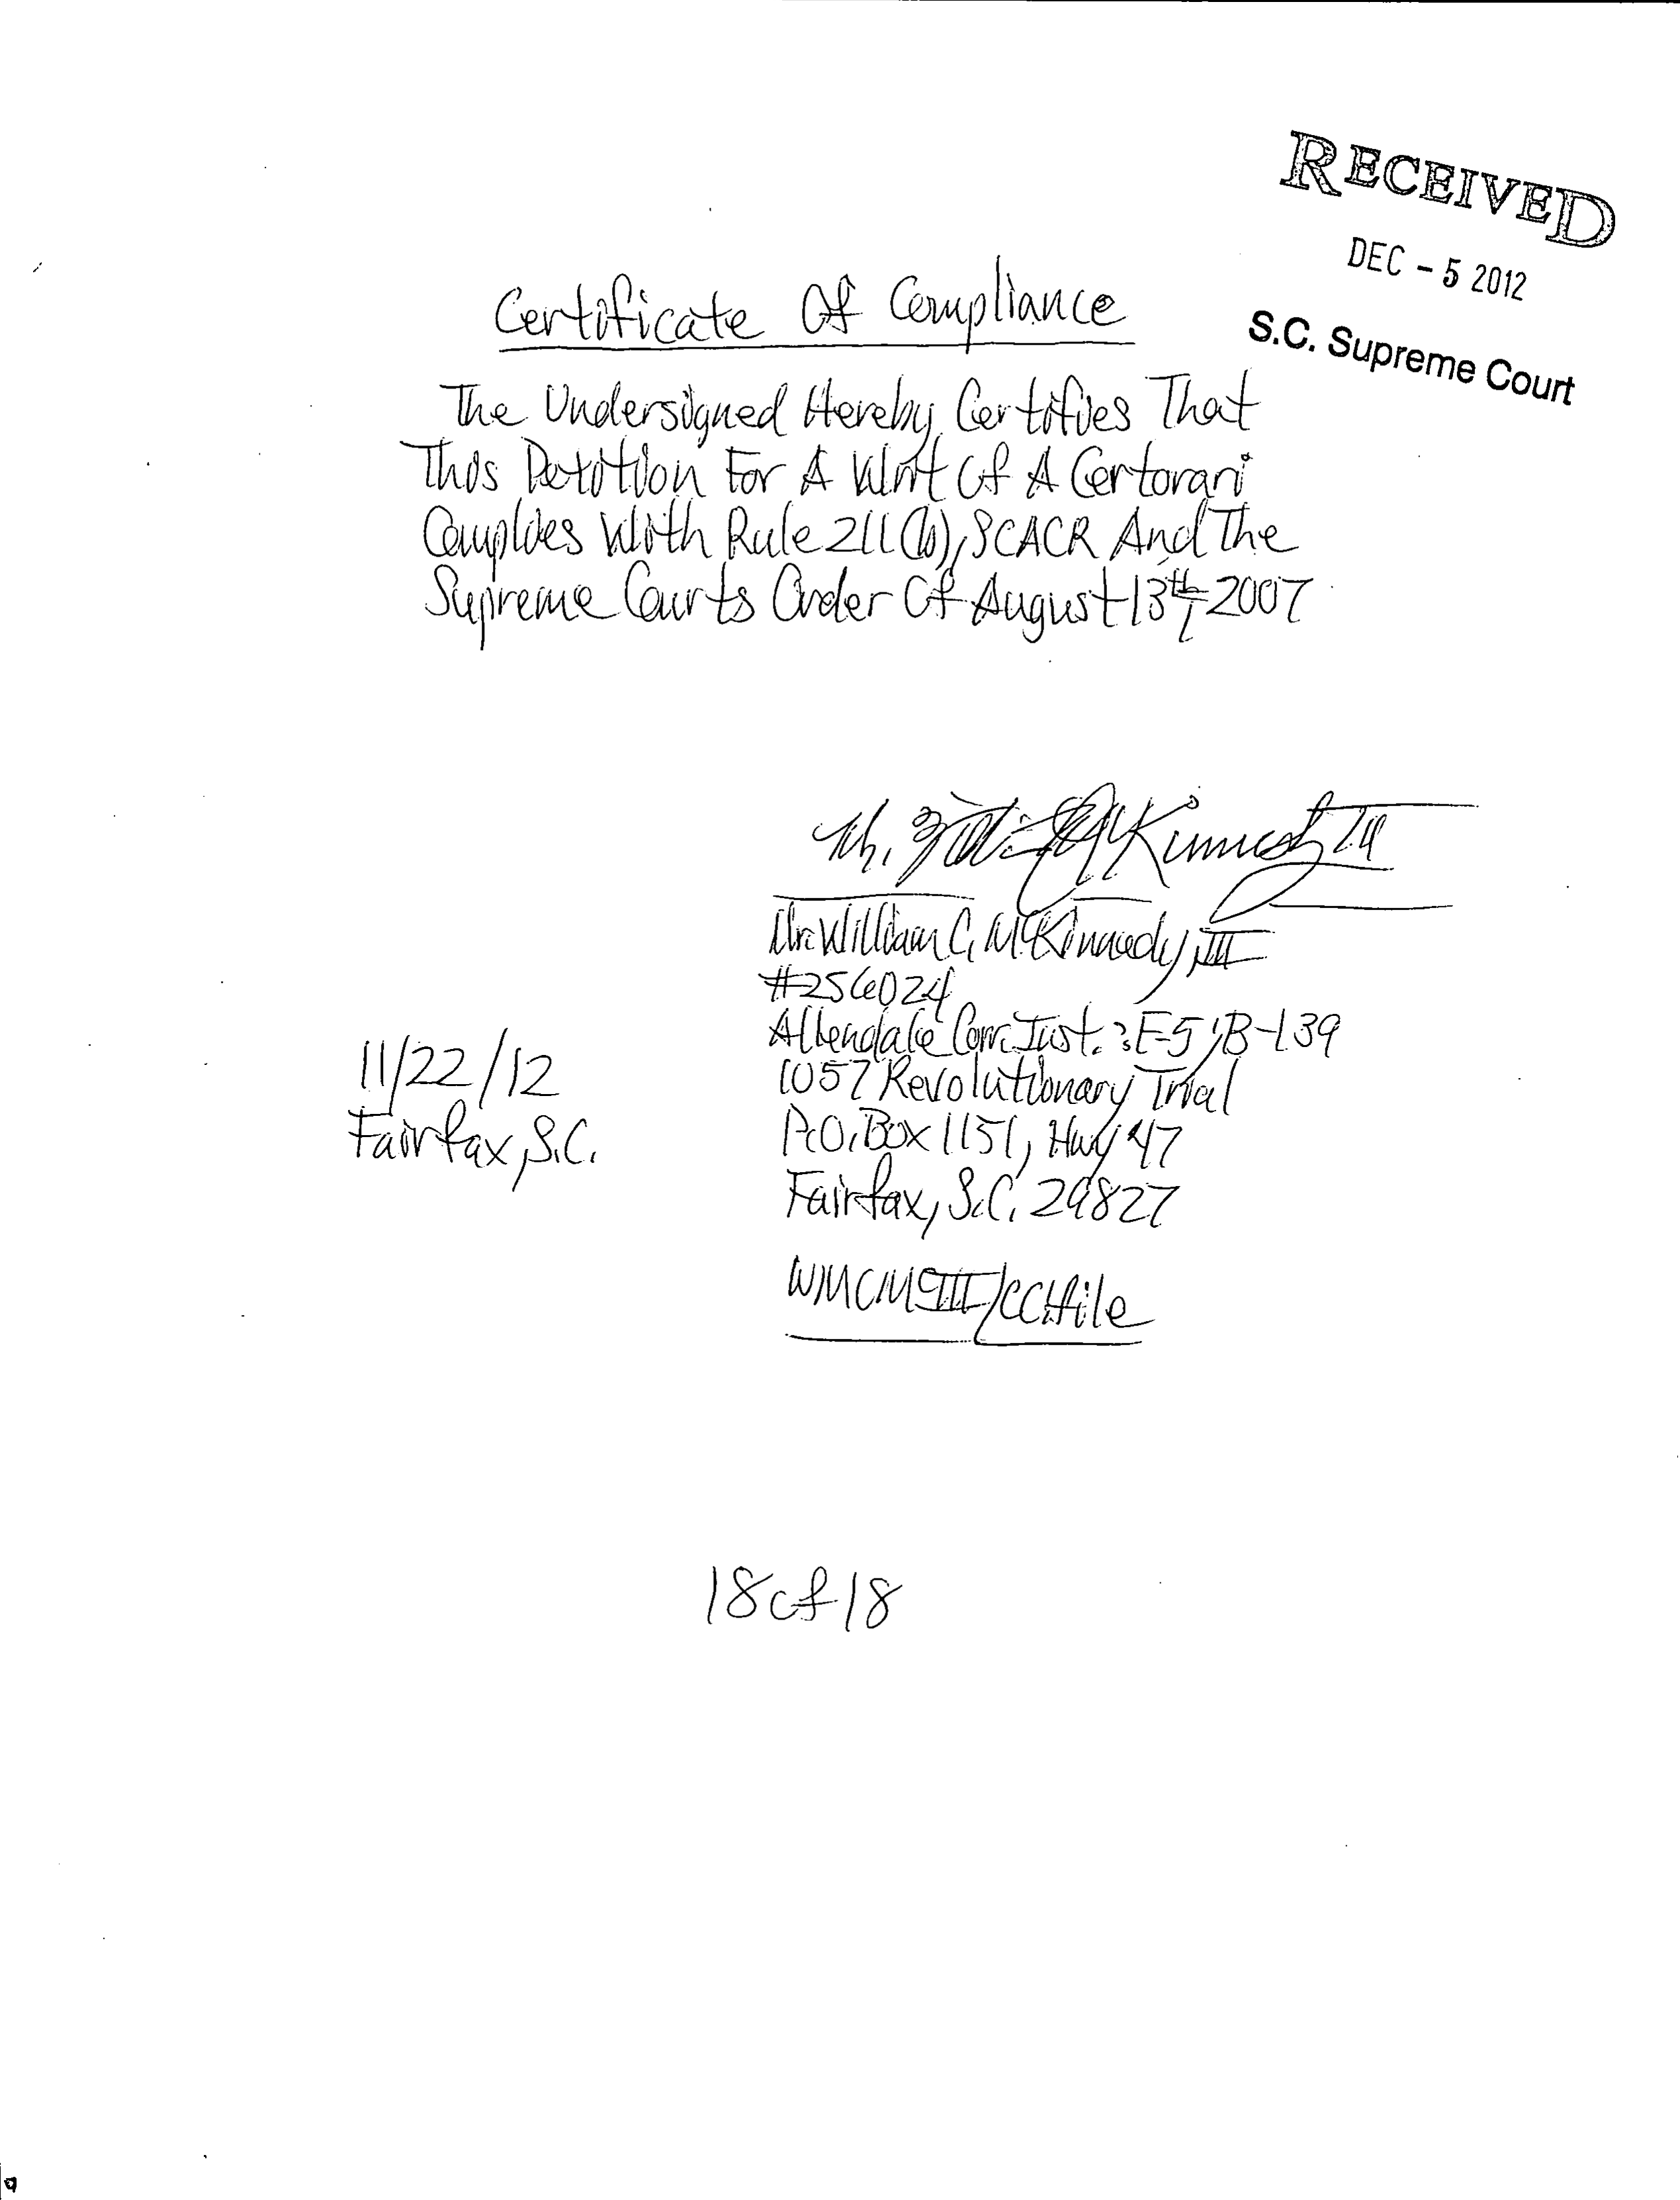 RECEIVED
DEC - 5 2012
S.C. Supreme Court
Certificate Of Compliance
The Undersigned Hereby Certifies That
This Petition For A Writ Of A Certorari
Complies With Rule 211(b), SCACR And The
Supreme Courts Order Of August 13th, 2007
Mr. William C. McKinnedy, III
#256024
Allendale Corr. Inst.: F-5; B-139
1057 Revolutionary Trial
P.O. Box 1151, Hwy 47
Fairfax, S.C. 29827
WMCMcIII/CC:file
11/22/12
Fairfax, S.C.
18 of 18